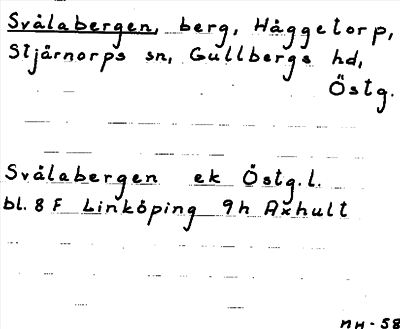 Svålabergen, berg, Häggetorp,
Stjärnorps sn, Gullbergs hd,
Östg.
Svålabergen ek Östg.l.
bl. 8 F Linköping 9h Axhult
NH-58